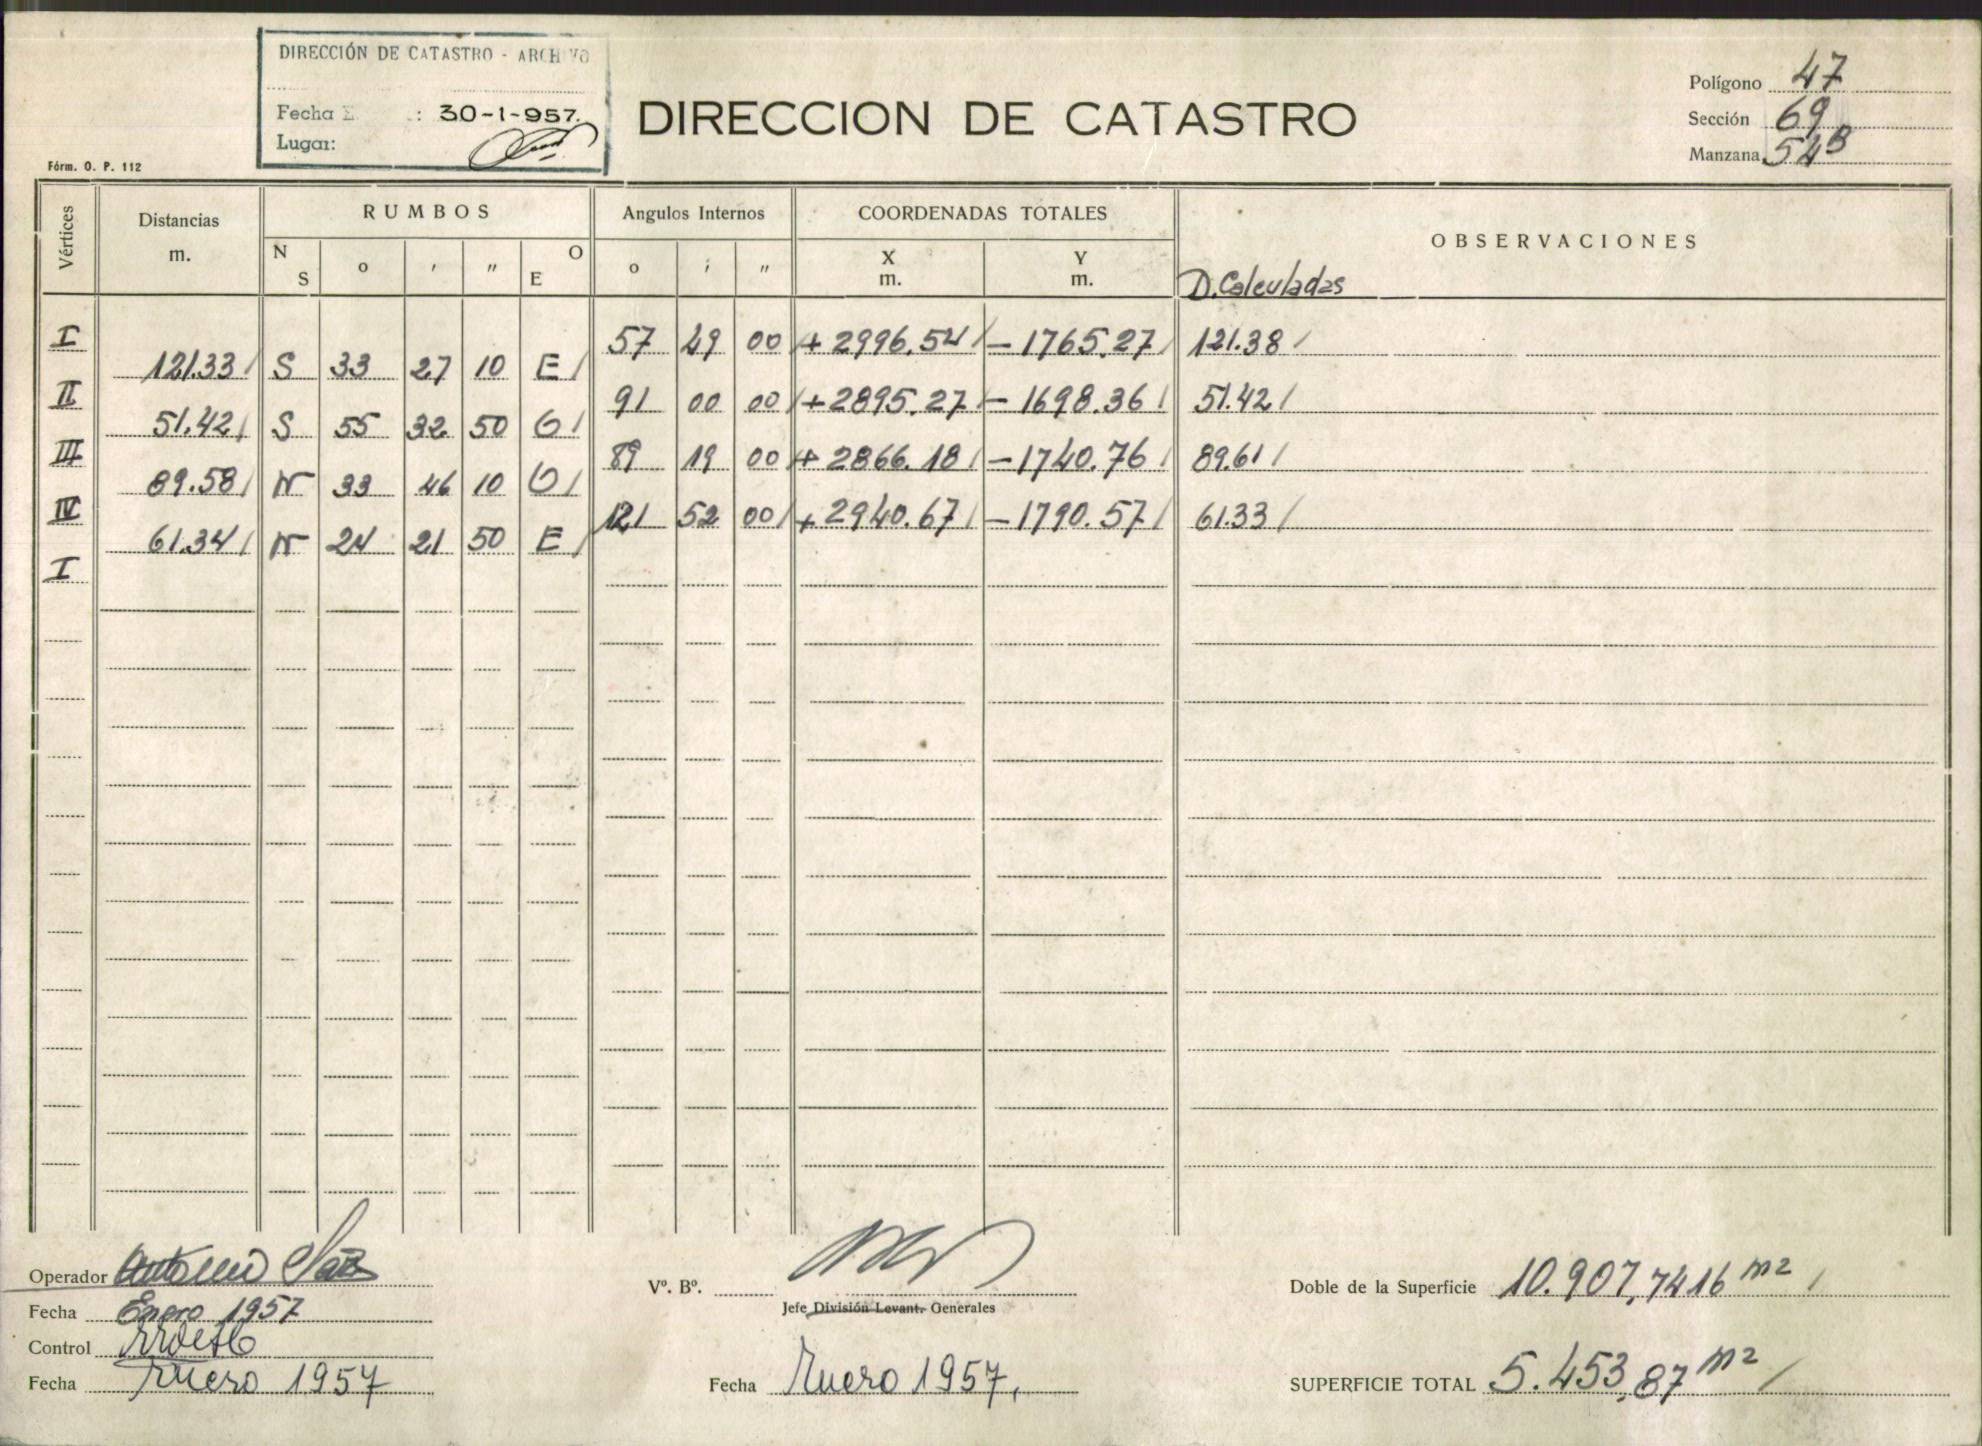 DIRECCIÓN DE CATASTRO - ARCHIVO
Fecha : 30-1-957.
Lugar:
Fórm. O. P. 112
DIRECCION DE CATASTRO
Polígono 47
Sección 69
Manzana 54B
Vértices Distancias m. RUMBOS Angulos Internos COORDENADAS TOTALES OBSERVACIONES
N S o ' " O E o ' " X m. Y m. D. Calculadas
I 57 49 00 + 2996.54 - 1765.27 121.38
121.33 S 33 27 10 E
II 91 00 00 + 2895.27 - 1698.36 51.42
51.42 S 55 32 50 O
III 89 19 00 + 2866.18 - 1740.76 89.61
89.58 N 33 46 10 O
IV 121 52 00 + 2940.67 - 1790.57 61.33
61.34 N 24 21 50 E
I
Operador Antonio
Fecha Enero 1957
Control
Fecha Enero 1957
Vº. Bº.
Jefe División Levant. Generales
Fecha Enero 1957.
Doble de la Superficie 10.907,7416 m2
SUPERFICIE TOTAL 5.453,87 m2